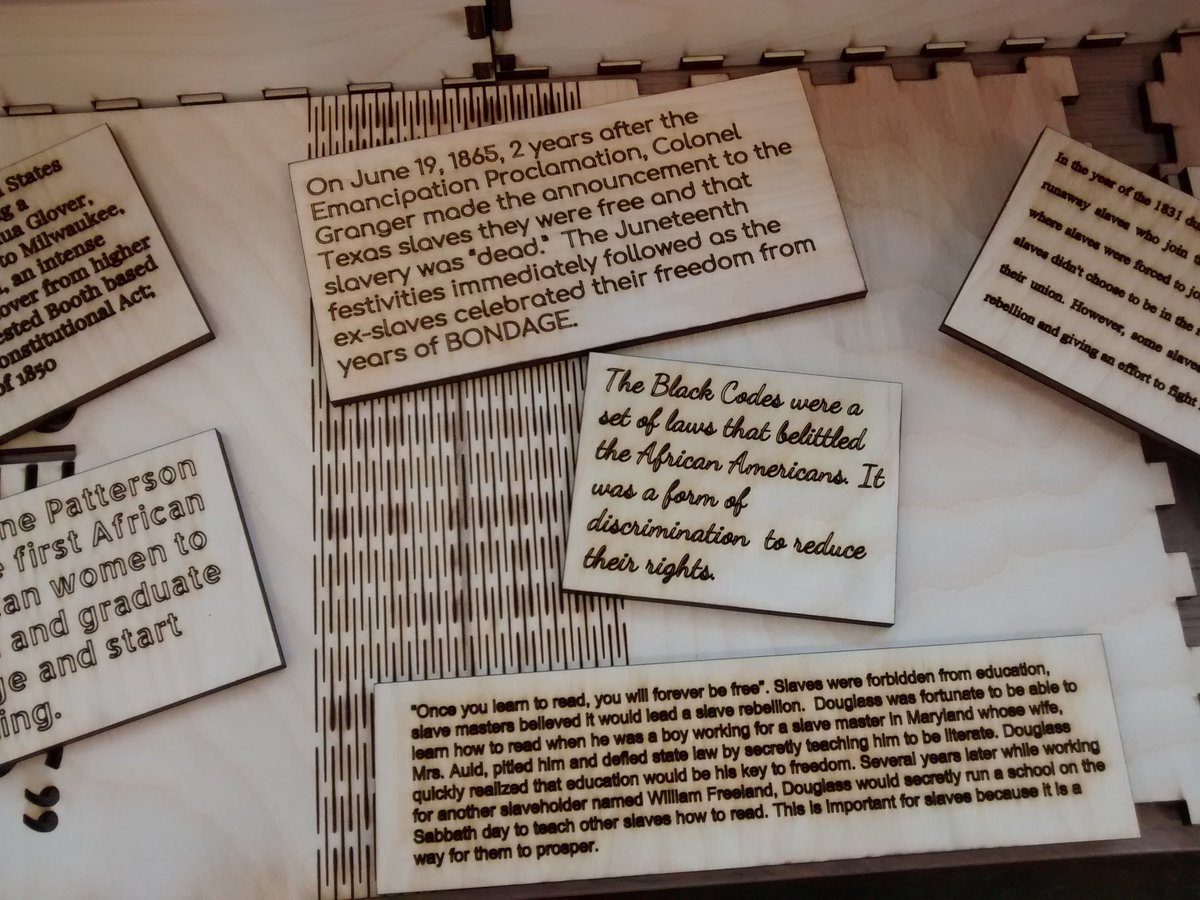 States
ng a
ua Glover,
to Milwaukee,
, an intense
over from higher
ested Booth based
onstitutional Act;
of 1850
On June 19, 1865, 2 years after the
Emancipation Proclamation, Colonel
Granger made the announcement to the
Texas slaves they were free and that
slavery was "dead." The Juneteenth
festivities immediately followed as the
ex-slaves celebrated their freedom from
years of BONDAGE.
In the year of the 1831
runaway slaves who join
where slaves were forced to
slaves didn't choose to be in the
their union. However, some slaves
rebellion and giving an effort to fight
ne Patterson
first African
an women to
and graduate
ge and start
ing.
The Black Codes were a
set of laws that belittled
the African Americans. It
was a form of
discrimination to reduce
their rights.
"Once you learn to read, you will forever be free". Slaves were forbidden from education,
slave masters believed it would lead a slave rebellion. Douglass was fortunate to be able to
learn how to read when he was a boy working for a slave master in Maryland whose wife,
Mrs. Auld, pitied him and defied state law by secretly teaching him to be literate. Douglass
quickly realized that education would be his key to freedom. Several years later while working
for another slaveholder named William Freeland, Douglass would secretly run a school on the
Sabbath day to teach other slaves how to read. This is important for slaves because it is a
way for them to prosper.